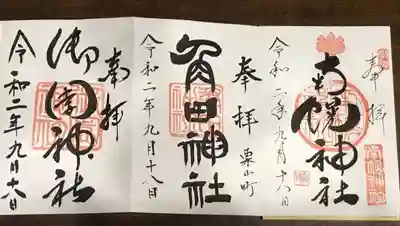 奉拝
南幌神社
令和二年九月十八日
奉拝 栗山町
角田神社
令和二年九月十八日
奉拝
御園神社
令和二年九月十八日